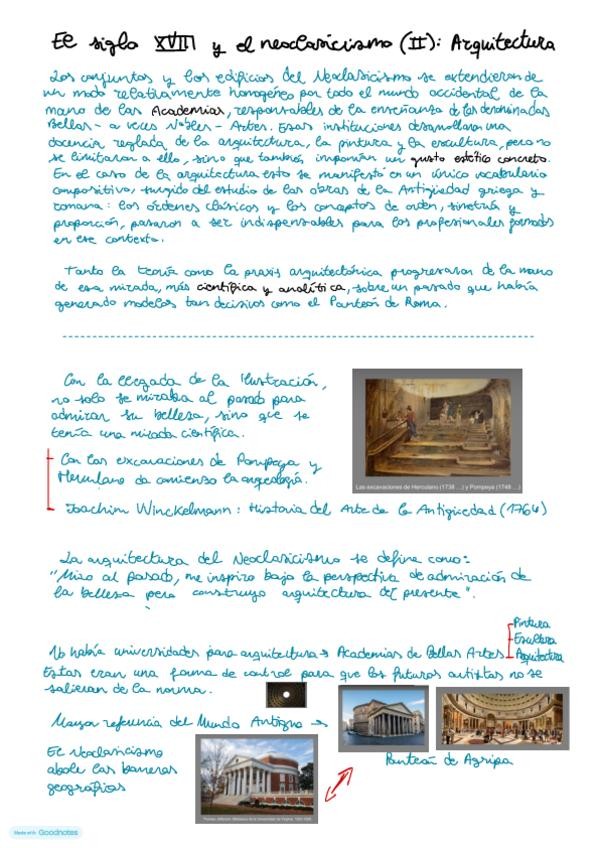 El siglo XVIII y el neoclasicismo (II): Arquitectura
Los conjuntos y los edificios del Neoclasicismo se extendieron de
un modo relativamente homogéneo por todo el mundo occidental de la
mano de las Academias, responsables de la enseñanza de las denominadas
Bellas - a veces Nobles - Artes. Esas instituciones desarrollaron una
docencia reglada de la arquitectura, la pintura y la escultura, pero no
se limitaron a ello, sino que también imponían un gusto estético concreto.
En el caso de la arquitectura esto se manifestó en un único vocabulario
compositivo, surgido del estudio de las obras de la Antigüedad griega y
romana: los órdenes clásicos y los conceptos de orden, simetría y
proporción, pasaron a ser indispensables para los profesionales formados
en ese contexto.
Tanto la teoría como la praxis arquitectónica progresaron de la mano
de esa mirada, más científica y analítica, sobre un pasado que había
generado modelos tan decisivos como el Panteón de Roma.
Con la llegada de la Ilustración,
no solo se miraba al pasado para
admirar su belleza, sino que se
tenía una mirada científica.
Con las excavaciones de Pompeya y
Herculano da comienzo la arqueología.
Las excavaciones de Herculano (1738 ...) y Pompeya (1748 ...)
Joachim Winckelmann: Historia del Arte de la Antigüedad (1764)
La arquitectura del Neoclasicismo se define como:
"Miro al pasado, me inspiro bajo la perspectiva de admiración de
la belleza pero construyo arquitectura del presente".
No había universidades para arquitectura → Academias de Bellas Artes
Pintura
Escultura
Arquitectura
Estas eran una forma de control para que los futuros artistas no se
salieran de la norma.
Mayor referencia del Mundo Antiguo →
Panteón de Agripa
El Neoclasicismo
abole las barreras
geográficas
Thomas Jefferson, Biblioteca de la Universidad de Virginia,
Made with Goodnotes